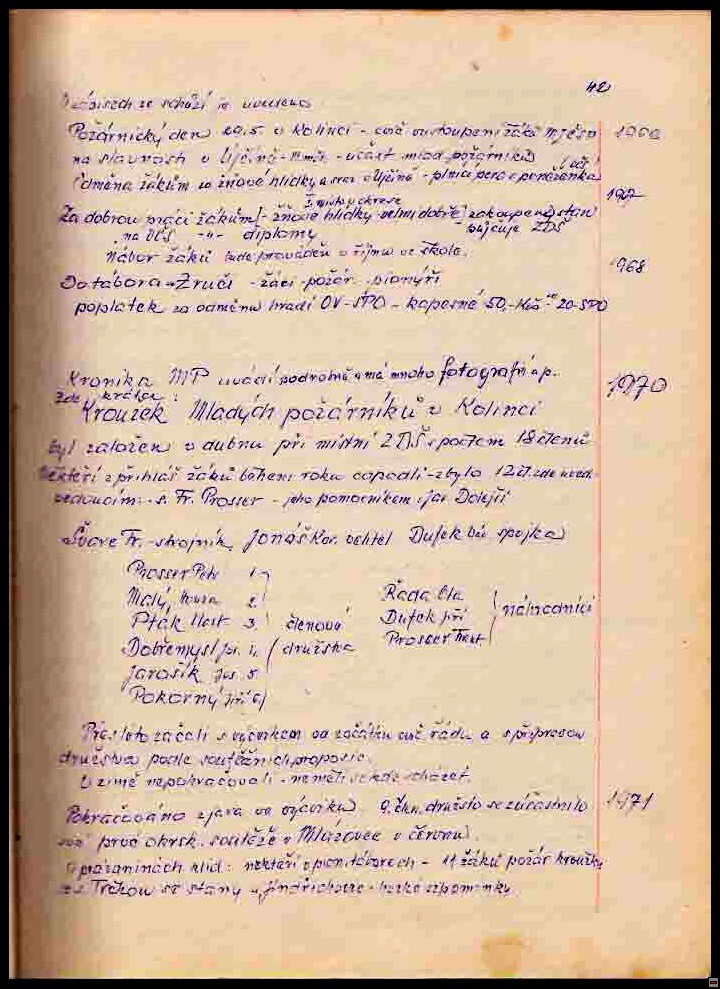 42
V zápisech ze schůzí je uvedeno
Požárnický den 29.5. v Kolinci - cvič. vystoupení žáků
na slavnosti v Ujčíně - účast mlad. požárníků
Odměna žákům za žňové hlídky a svaz. v Ujčíně - plnicí pero a peněženka
I. místo v okrese
1967
Za dobrou práci žákům - žňové hlídky velmi dobře zakoupen stan
- " - diplomy půjčuje ZDŠ
Nábor žáků bude prováděn v říjnu ve škole.
1968
Do tábora Zruči - žáci požár. pionýři
poplatek za odměnu hradí OV-SPO - kapesné 50,- Kčs 20 - SPO
Kronika MP uvádí podrobně a má mnoho fotografií a p.
1970
Zde krátce:
Kroužek Mladých požárníků v Kolinci
byl založen v dubnu při místní ZDŠ s počtem 18 členů
Někteří z přihláš. žáků během roku odpadli - zbylo 12 čl. zde uved.
vedoucím s. Fr. Prosser - jeho pomocníkem Jar. Dolejší
Švarc Fr. - strojník, Jonáš Kar. velitel Dufek spojka
Prosser Petr 1
Malý 2
Řada
Pták 3 členové
Dufek Jiří náhradníci
Dobřemysl 4 družstva
Prosser
Jarošík 5
Pokorný Jiří 6
Přes léto začali s výcvikem od začátku cvič. řádu a s přípravou
družstva podle soutěžních proposic.
V zimě nepokračovali - neměli se kde scházet.
1971
Pokračováno z jara ve výcviku. 9 čln. družstvo se zúčastnilo
své prvé okrsk. soutěže v Mlázovech v červnu.
O prázninách klid: někteří v pion. táborech - 11 žáků požár. kroužku
se stany u Jindřichovic - hezké vzpomínky.